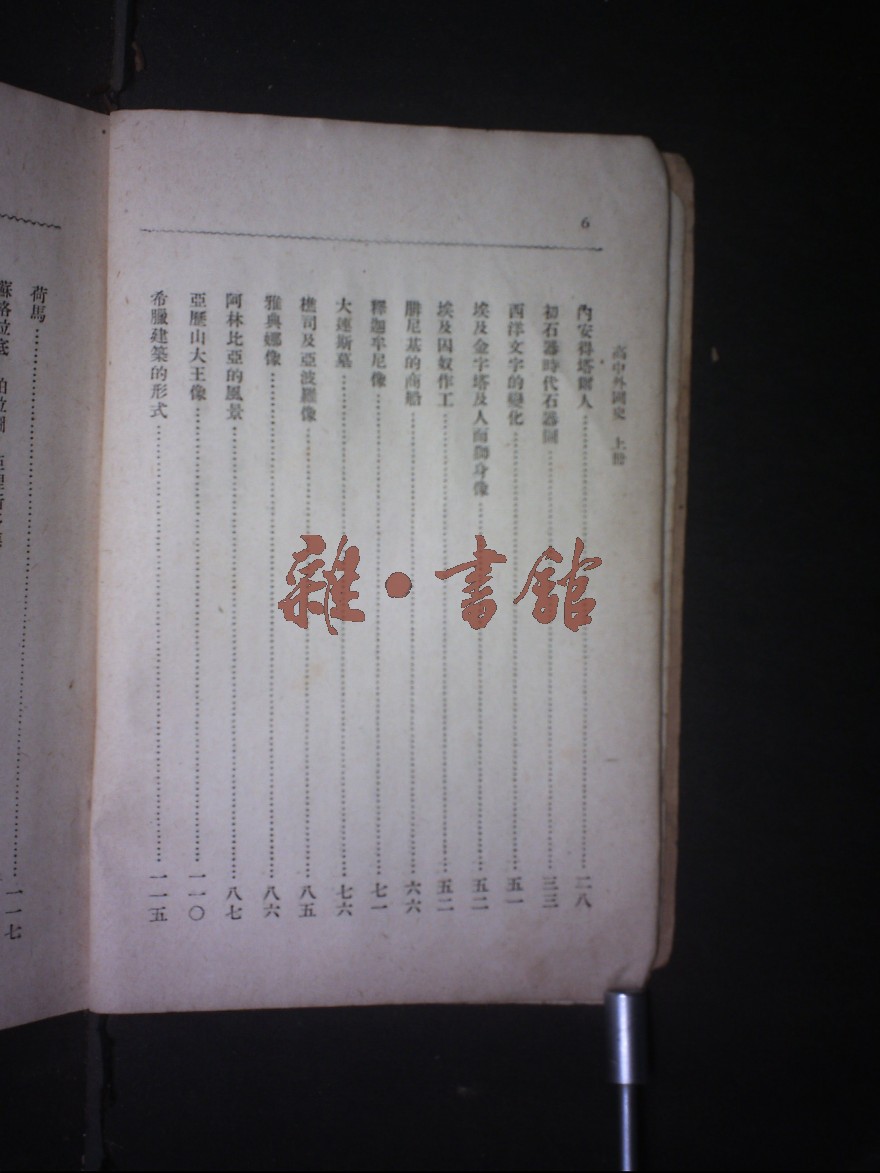 6
高中外國史 上冊
內安得塔爾人 二八
初石器時代石器圖 三三
西洋文字的變化 五一
埃及金字塔及人面獅身像 五二
埃及囚奴作工 五二
腓尼基的商船 六六
釋迦牟尼像 七一
大連斯墓 七六
樵司及亞波羅像 八五
雅典娜像 八六
阿林比亞的風景 八七
亞歷山大王像 一一〇
希臘建築的形式 一一五
荷馬 一一七
蘇格拉底 柏拉圖
雜·書館